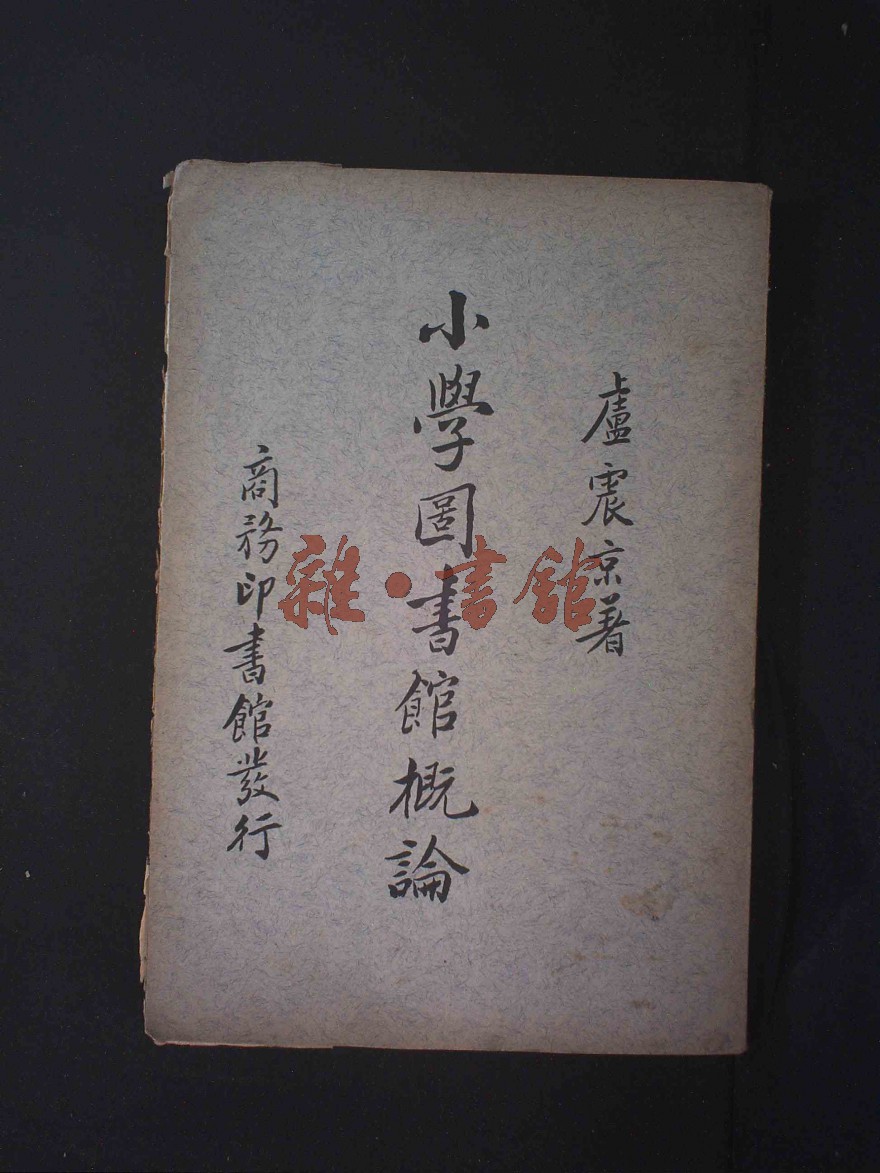 盧震京著
小學圖書館概論
商務印書館發行
雜·書館